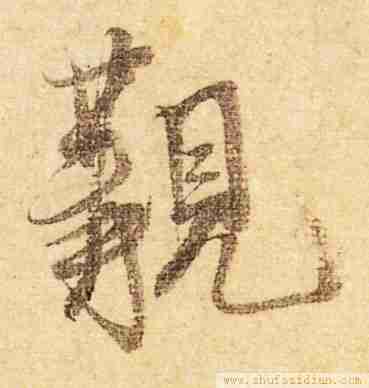 覯
www.shufazidian.com